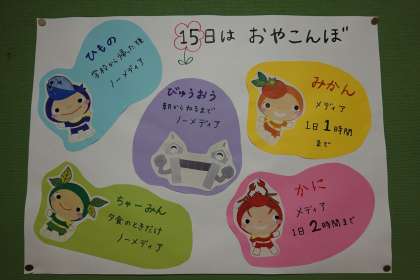 15日は おやこんぼ
ひもの
学校から帰った後
ノーメディア
びゅうおう
朝からねるまで
ノーメディア
みかん
メディア
1日1時間
まで
ちゃーみん
夕食のときだけ
ノーメディア
かに
メディア
1日2時間まで